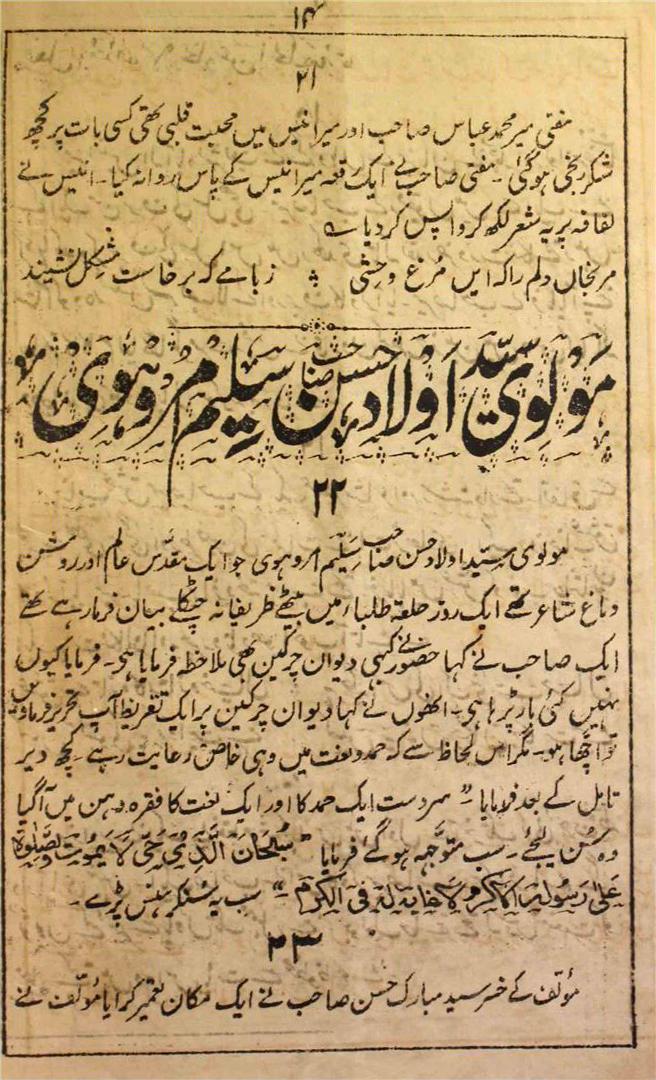 ۱۴
۲۱
مفتی میر محمد عباس صاحب اور میر انیس میں محبت قلبی تھی کسی بات پر کچھ
شکر رنجی ہو گئی ۔ مفتی صاحب نے ایک رقعہ میر انیس کے پاس روانہ کیا ۔ انیس نے
لفافہ پر یہ شعر لکھ کر واپس کر دیا ے
مرنجاں دلم را کہ ایں مرغ وحشی ؛ زبامے کہ برخاست مشکل نشیند
مولوی سید اولاد حسن صاحب سلیم امروہوی
۲۲
مولوی سید اولاد حسن صاحب سلیم امروہوی جو ایک مقدس عالم اور روشن
دماغ شاعر تھے ایک روز حلقہ طلباء میں بیٹھے ظریفانہ چٹکلے بیان فرما رہے تھے
ایک صاحب نے کہا حضور نے کبھی دیوان چرکین بھی ملاحظہ فرمایا ہی ۔ فرمایا کیوں
نہیں کئی بار پڑہا ہی ۔ انھوں نے کہا دیوان چرکین پر ایک تقریظ آپ تحریز فرماویں
تو اچھا ہو ۔ مگر اس لحاظ سے کہ حمد و نعت میں وہی خاص رعایت رہے ۔ کچھ دیر
تامل کے بعد فرمایا ۔" سردست ایک حمد کا اور ایک نعت کا فقرہ ذہن میں آگیا
وہ سُن لیجئے ۔ سب متوجہ ہو گئے فرمایا " سُبْحَانَ الَّذِيْ حَیّ لَا یَمُوت وَصَلٰوۃ
عَلیٰ رَسُولِہِ الکرام "۔ سب یہ سُنکر ہنس پڑے ۔
۲۳
مؤلف کے خسر سید مبارک حسن صاحب نے ایک مکان تعمیر کرایا مؤلف نے